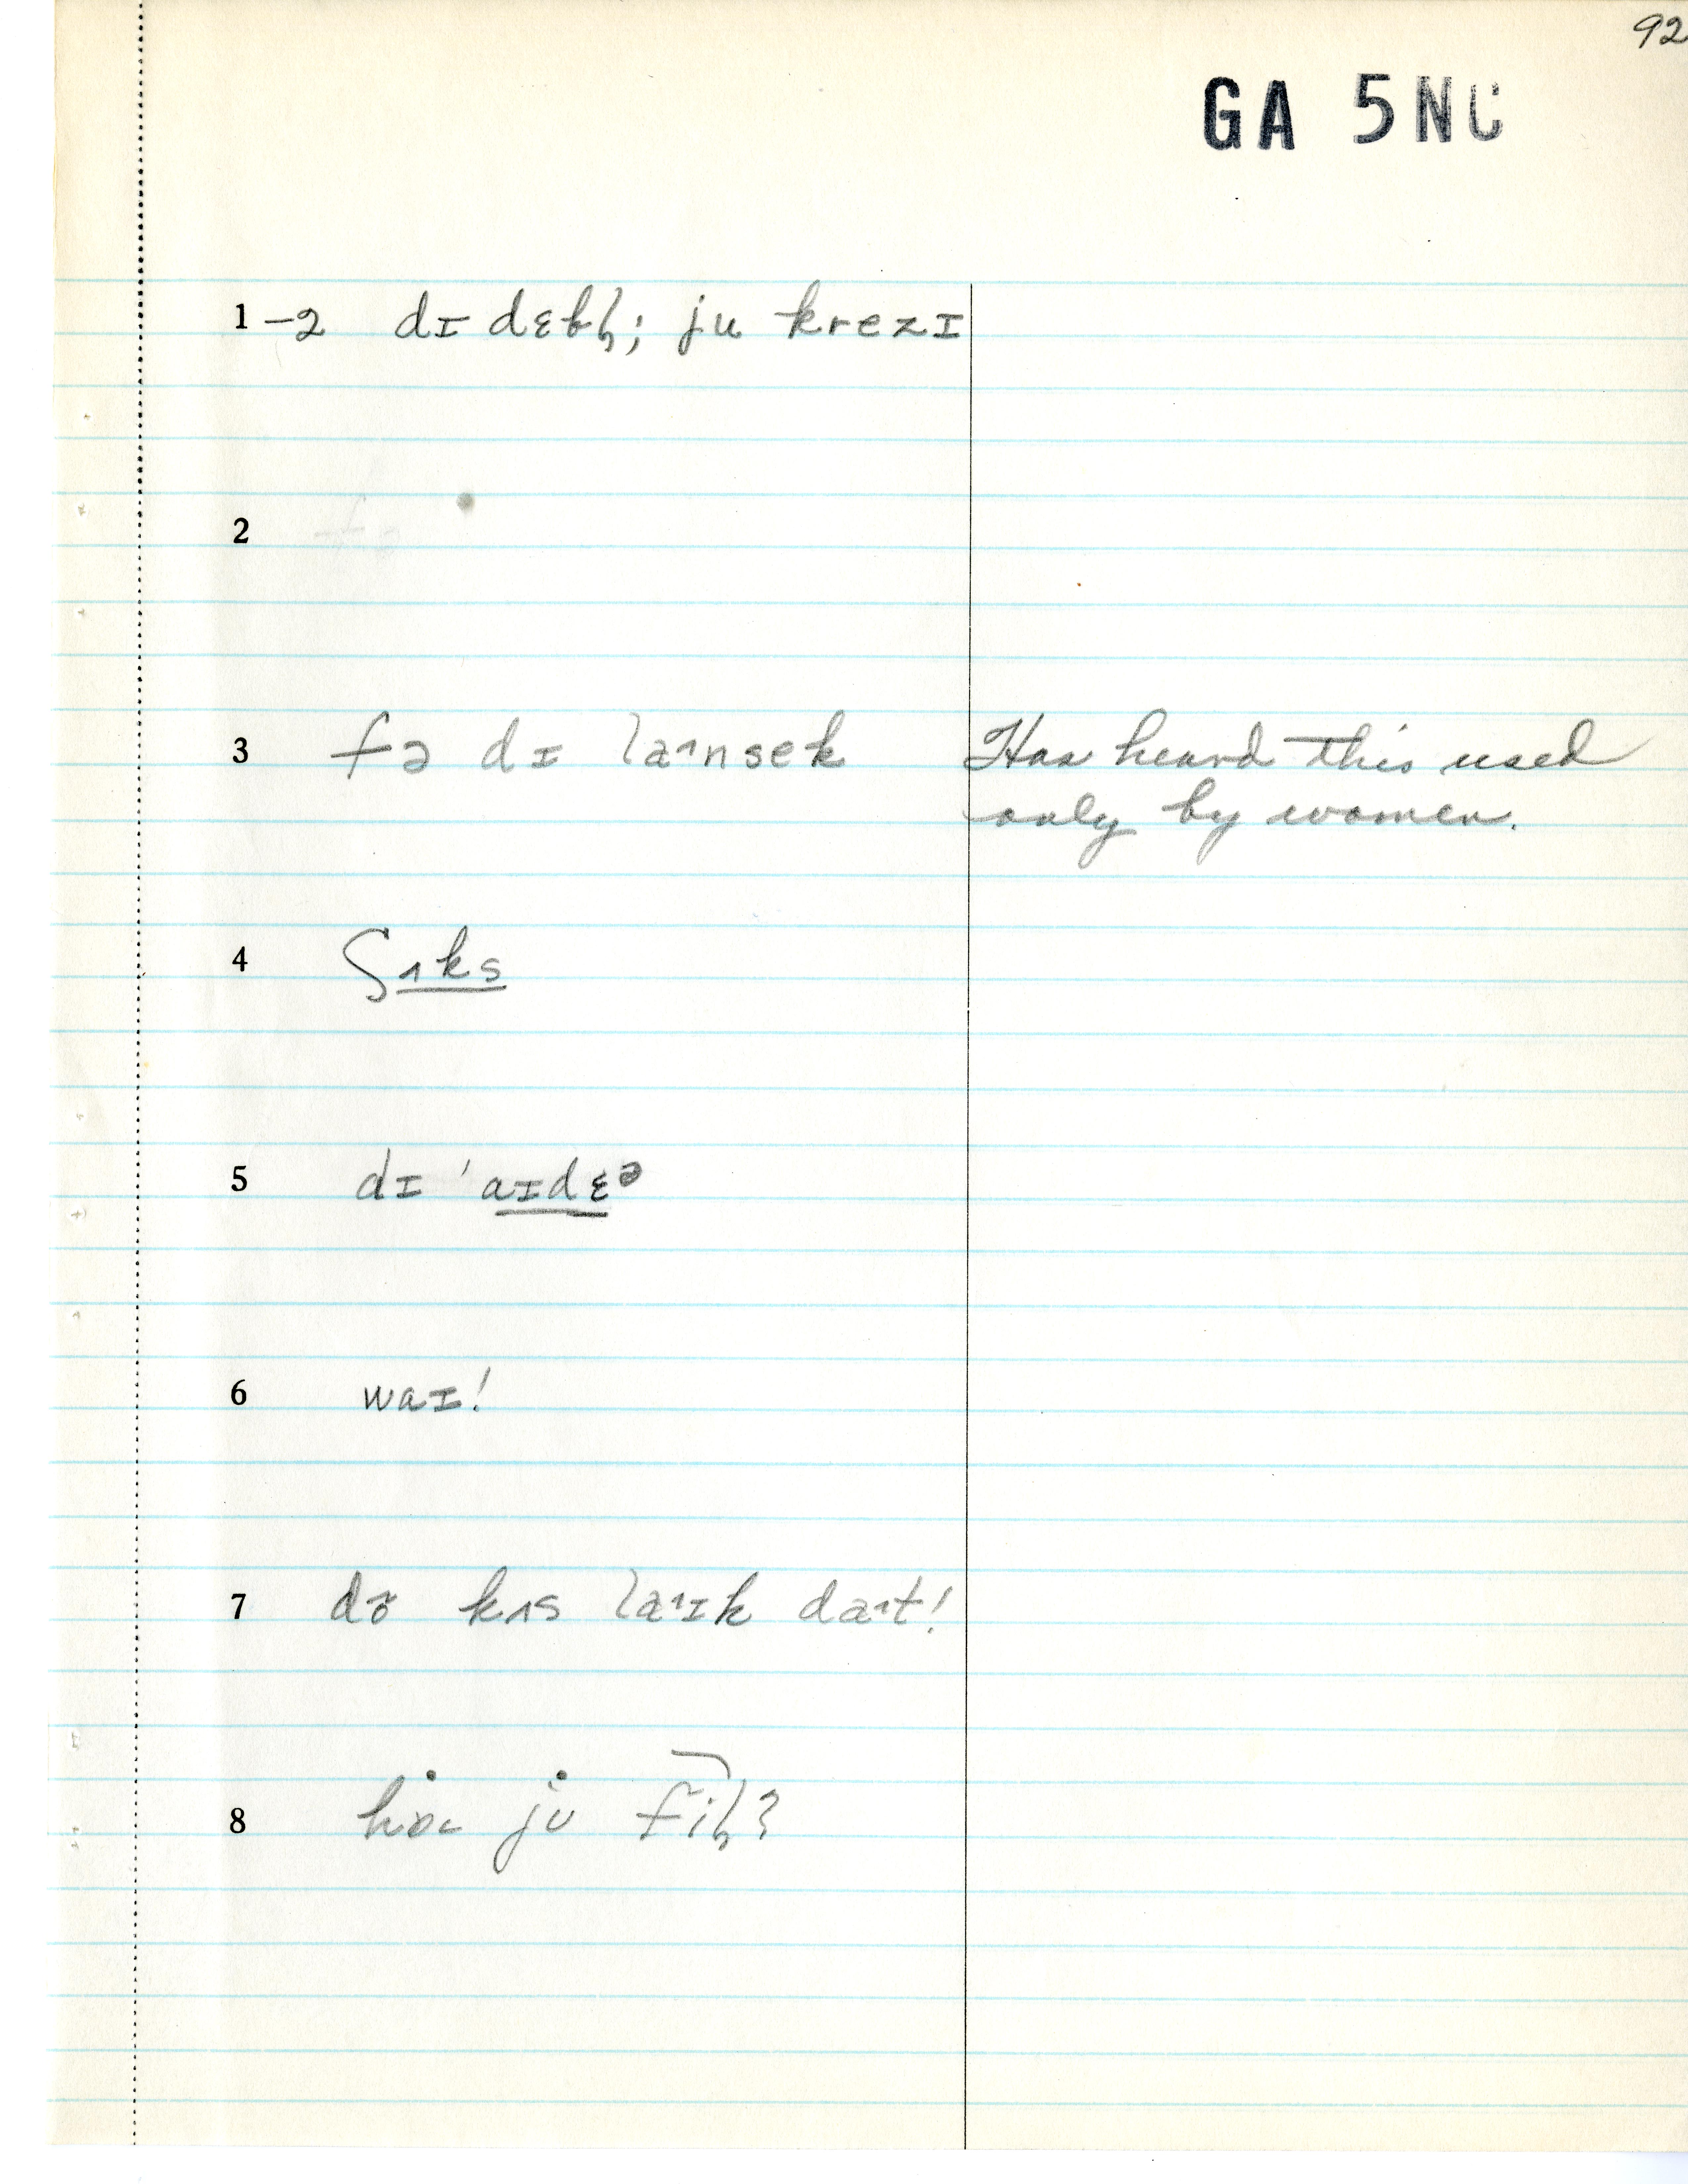 92
GA 5NC
1-2 dɪ dɛbl̩; ju krezɪ
2
3 fə dɪ laˑnsek Has heard this used
only by women.
4 ʃʌks
5 dɪ ˈaɪdɛᵊ
6 waɪ!
7 kʌs laˑɪk daˑt!
8 ju fil̩?